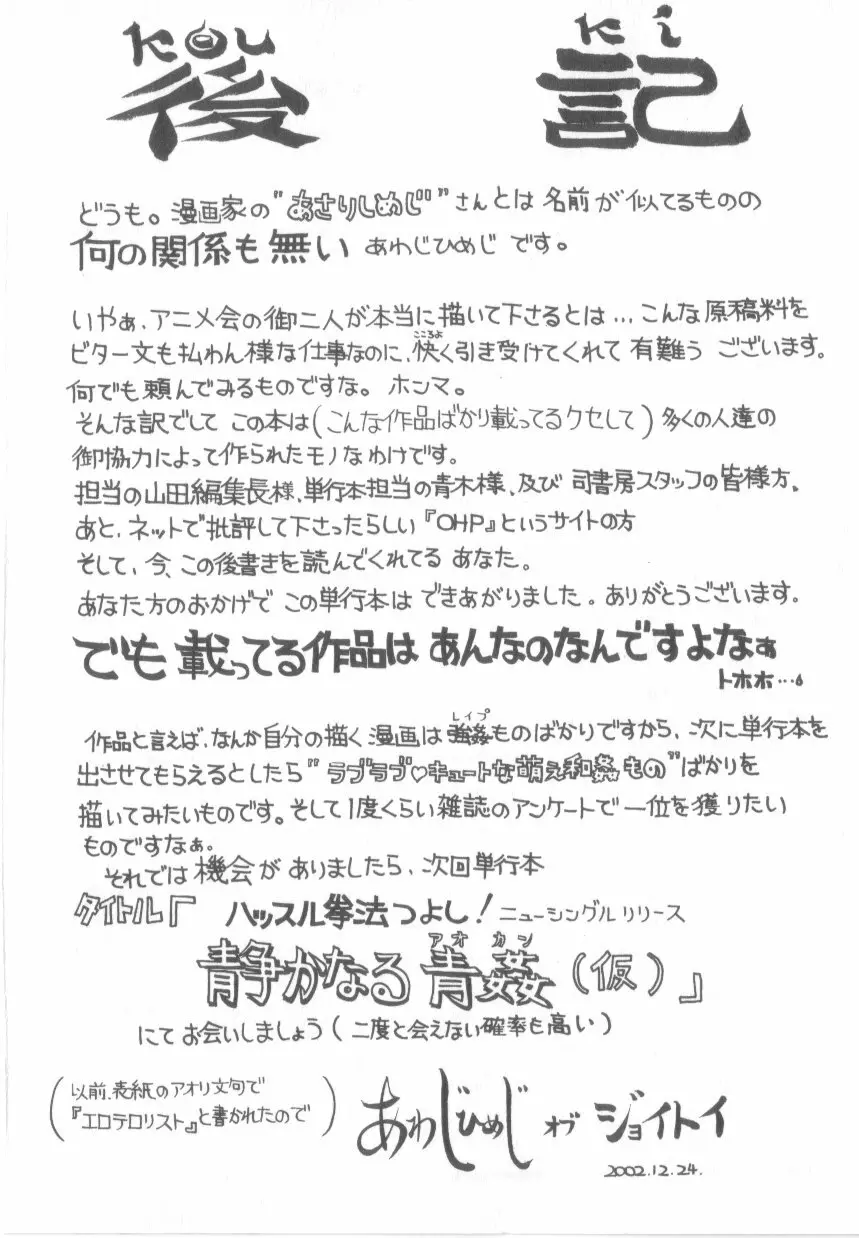 KOU KI
後記
どうも。漫画家の"あさりしめじ"さんとは名前が似てるものの
何の関係も無い あわじひめじ です。
いやぁ、アニメ会の御二人が本当に描いて下さるとは…こんな原稿料を
ビター文も払わん様な仕事なのに、快く引き受けてくれて 有難う ございます。
こころよ
何でも頼んでみるものですな。 ホンマ。
そんな訳でして この本は(こんな作品ばかり載ってるクセして)多くの人達の
御協力によって作られたモノなわけです。
担当の山田編集長様、単行本担当の青木様、及び 司書房スタッフの皆様方。
あと、ネットで批評して下さったらしい『OHP』というサイトの方
そして、今、この後書きを読んでくれてる あなた。
あなた方のおかげで この単行本は できあがりました。ありがとうございます。
でも 載ってる作品は あんなのなんですよなぁ
トホホ…
レイプ
作品と言えば、なんか自分の描く漫画は強姦ものばかりですから、次に単行本を
出させてもらえるとしたら"ラブラブ♡キュートな萌え和姦もの"ばかりを
描いてみたいものです。そして1度くらい雑誌のアンケートで一位を獲りたい
ものですなぁ。
それでは 機会が ありましたら、次回単行本
タイトル『 ハッスル拳法つよし! ニューシングルリリース
アオ カン
静かなる 青姦 (仮)』
にて お会いしましょう(二度と会えない確率も高い)
(以前、表紙のアオリ文句で
『エロテロリスト』と書かれたので)
あわじひめじ オブ ジョイトイ
2002.12.24.